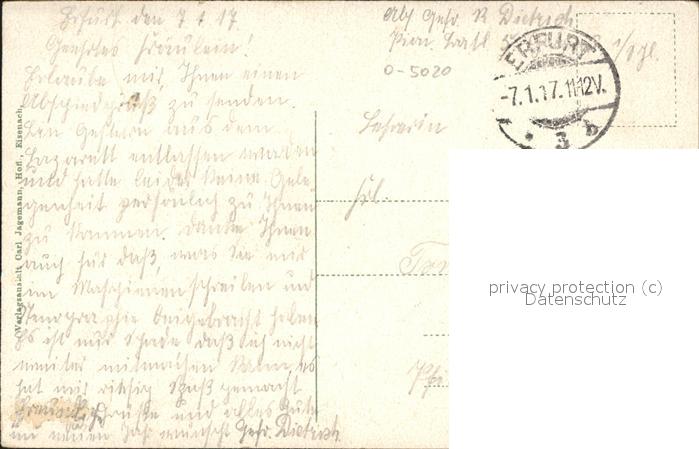 Erfurt den 7.1.17
Geehrtes Fräulein!
Erlaube mir Ihnen einen
Abschiedsgruß zu senden.
Bin gestern aus dem
Lazarett entlassen worden
und hatte leider keine Gele-
genheit persönlich zu Ihnen
zu kommen. Danke Ihnen
auch für daß, was Sie mir
im Maschienenschreiben und
Stenographie beigebracht haben
Es ist mir schade daß ich nicht
weiter mitmachen kann, es
hat mir riesig Spaß gemacht
Grüße und alles Gute
im neuen Jahr wünscht Gefr. Dietrich
Verlagsanstalt Carl Jagemann, Hofl., Eisenach
Abs Gefr. R Dietrich
Pion. Batl
0-5020
ERFURT
-7.1.17.11-12V.
* 3 b
Lehrerin
Frl.
privacy protection (c)
Datenschutz